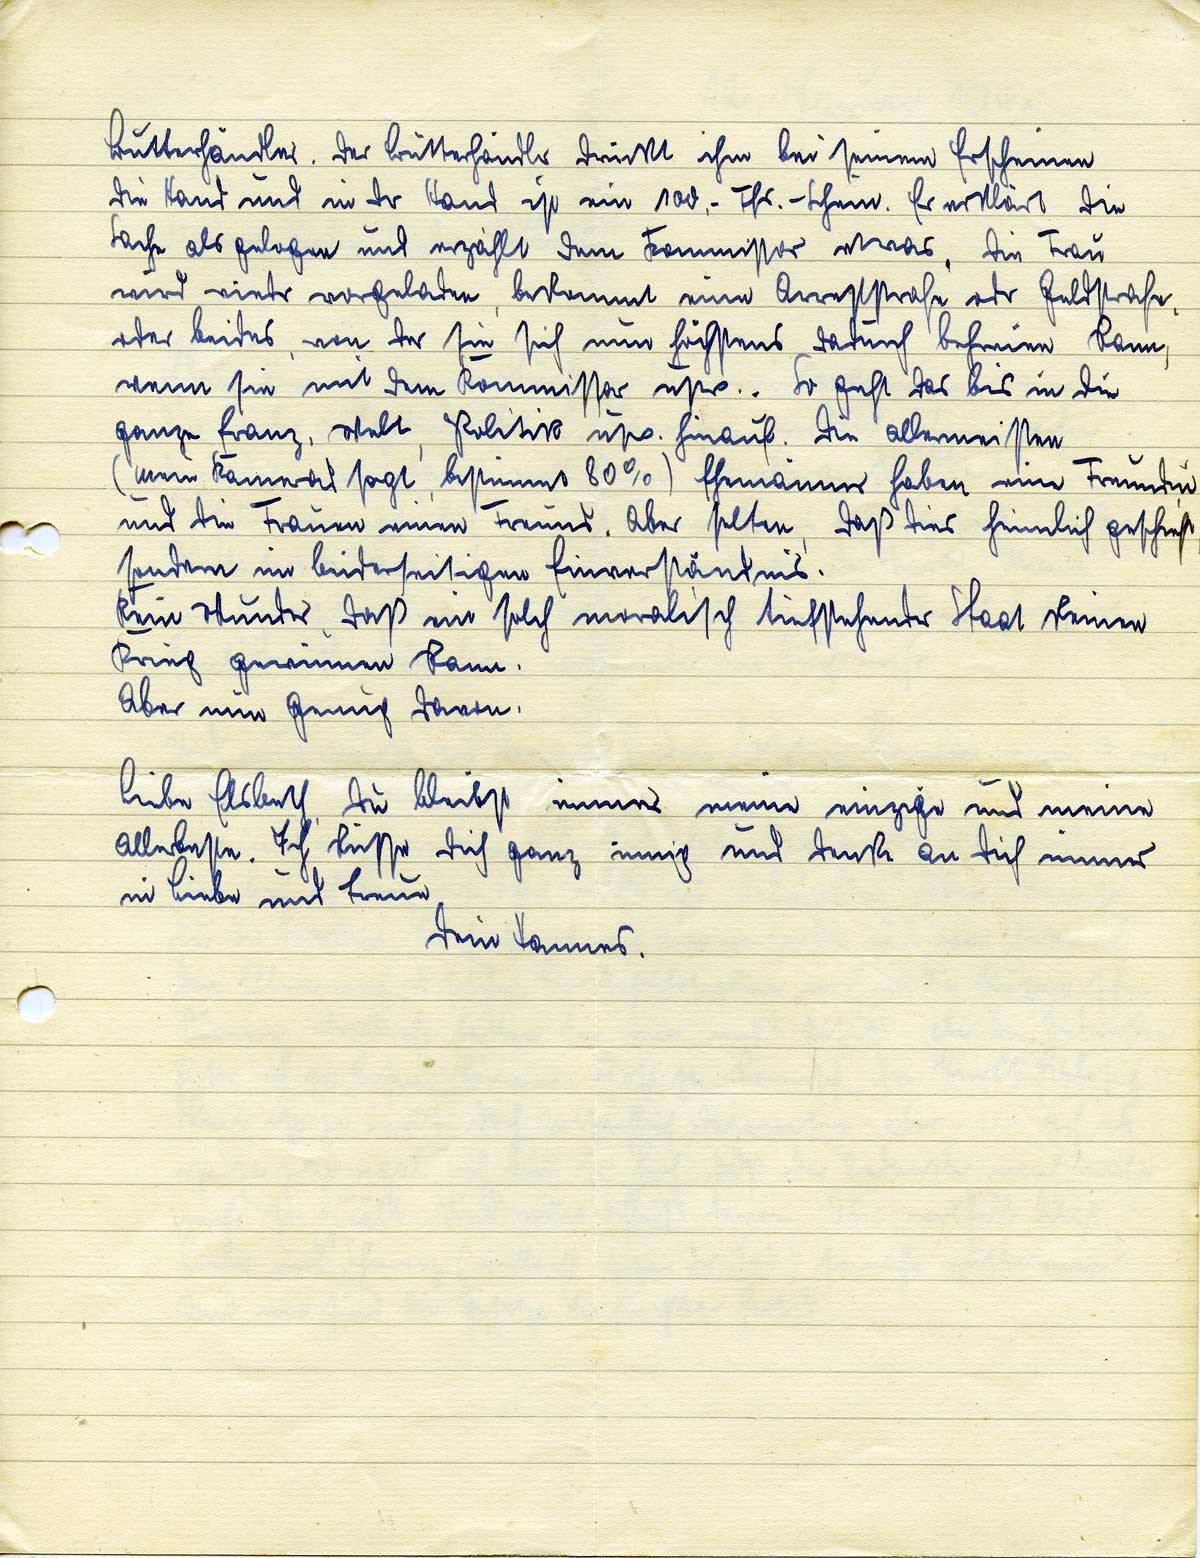 Butterhändler. Der Butterhändler drückt ihm bei seinem Erscheinen
die Hand und in dr Hand ist ein 100,- Frs.-Schein. Er erklärt die
Sache als gelogen und erzählt dem Kommissar etwas, die Frau
wird wiedr vorgeladen, bekommt eine Arreststrafe odr Geldstrafe,
oder beides, von der sie sich nun höchstens dadurch befreien kann,
wenn sie mit dem Kommissar usw.. So geht das bis in die
ganze franz. Welt, Politik usw. hinauf. Die allermeisten
(mein Kamerad sagt, bestimmt 80%) Ehemänner haben eine Freundin
und die Frauen einen Freund. Aber selten, daß dies heimlich geschieht,
sondern im beiderseitigen Einverständnis.
Kein Wunder, daß ein solch moralisch tiefstehender Staat keinen
Krieg gewinnen kann.
Aber nun genug davon.
Liebe Elsbeth, Du bleibst immer meine einzige und meine
Allerbeste. Ich küsse Dich ganz innig und denke an Dich immer
in Liebe und Treue
Dein Hannes.